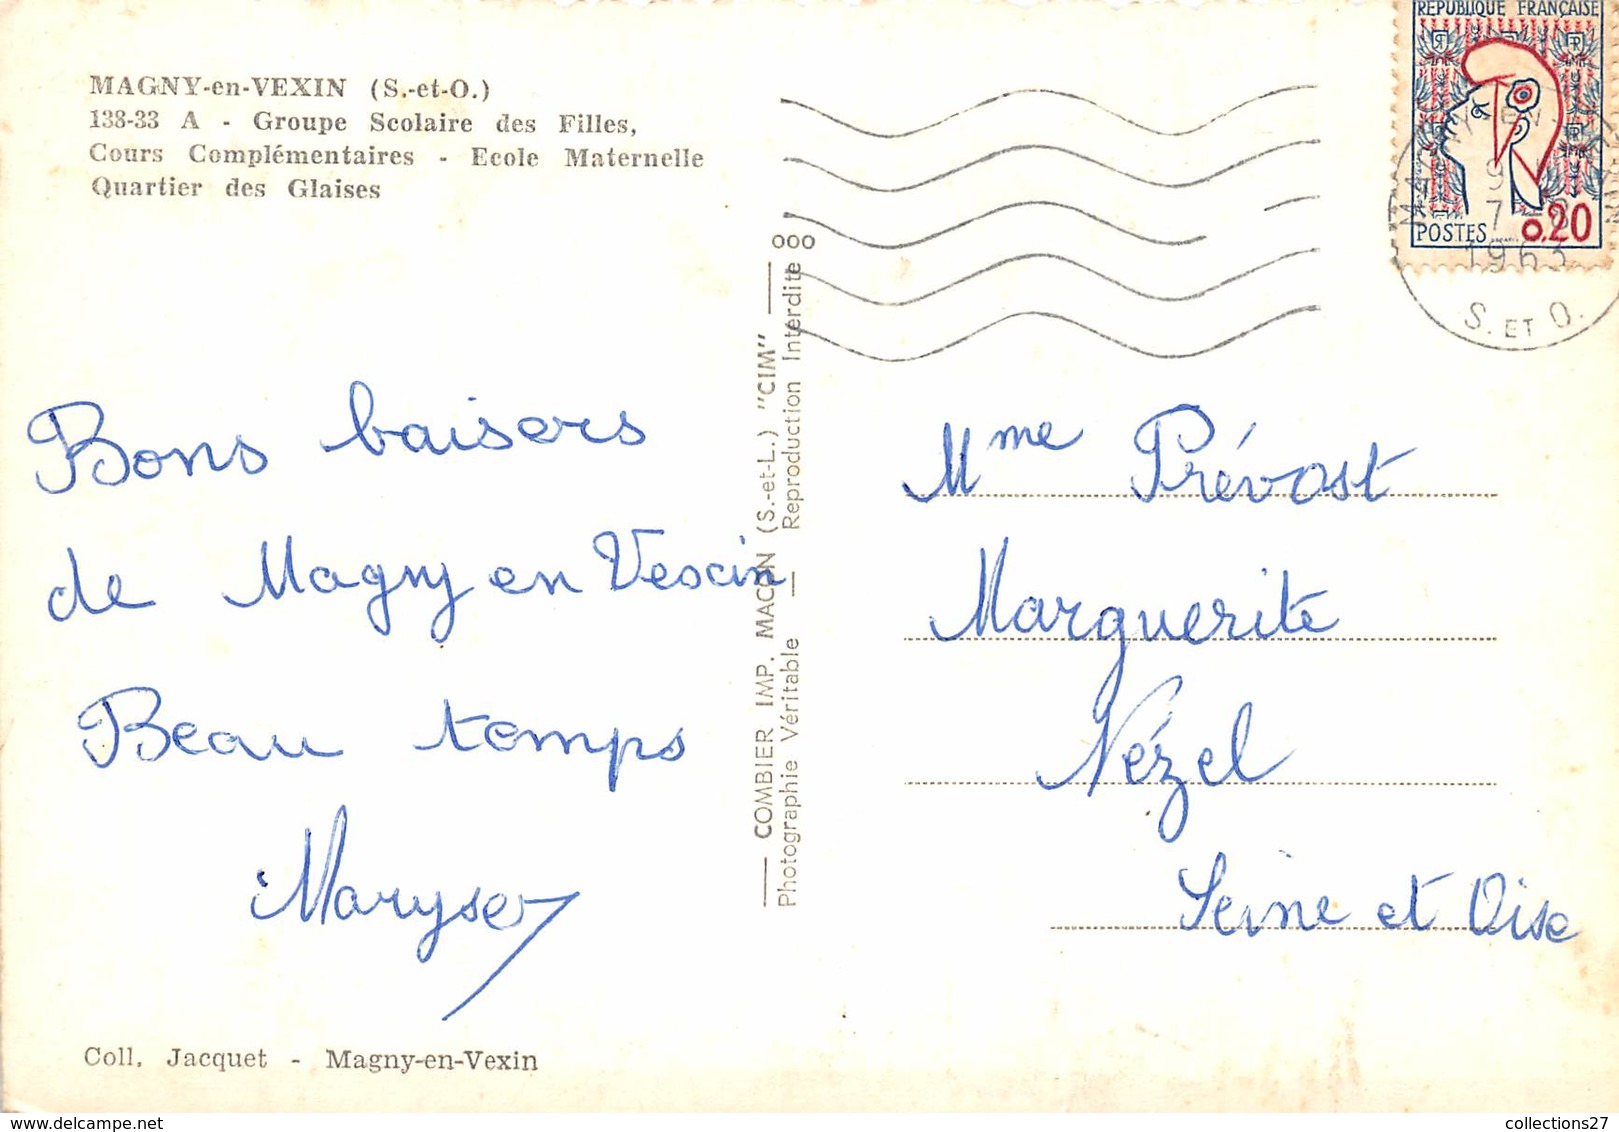 MAGNY-en-VEXIN (S.-et-O.)
138-33 A - Groupe Scolaire des Filles,
Cours Complémentaires - Ecole Maternelle
Quartier des Glaises
Bons baisers
de Magny en Vexin
Beau temps
Maryse
Coll. Jacquet - Magny-en-Vexin
COMBIER IMP. MACON (S.-et-L.) "CIM"
Photographie Véritable — Reproduction Interdite
000
RÉPUBLIQUE FRANÇAISE
RF
POSTES 0,20
1963
S. ET O.
Mme Prévost
Marguerite
Nézel
Seine et Oise
collections27